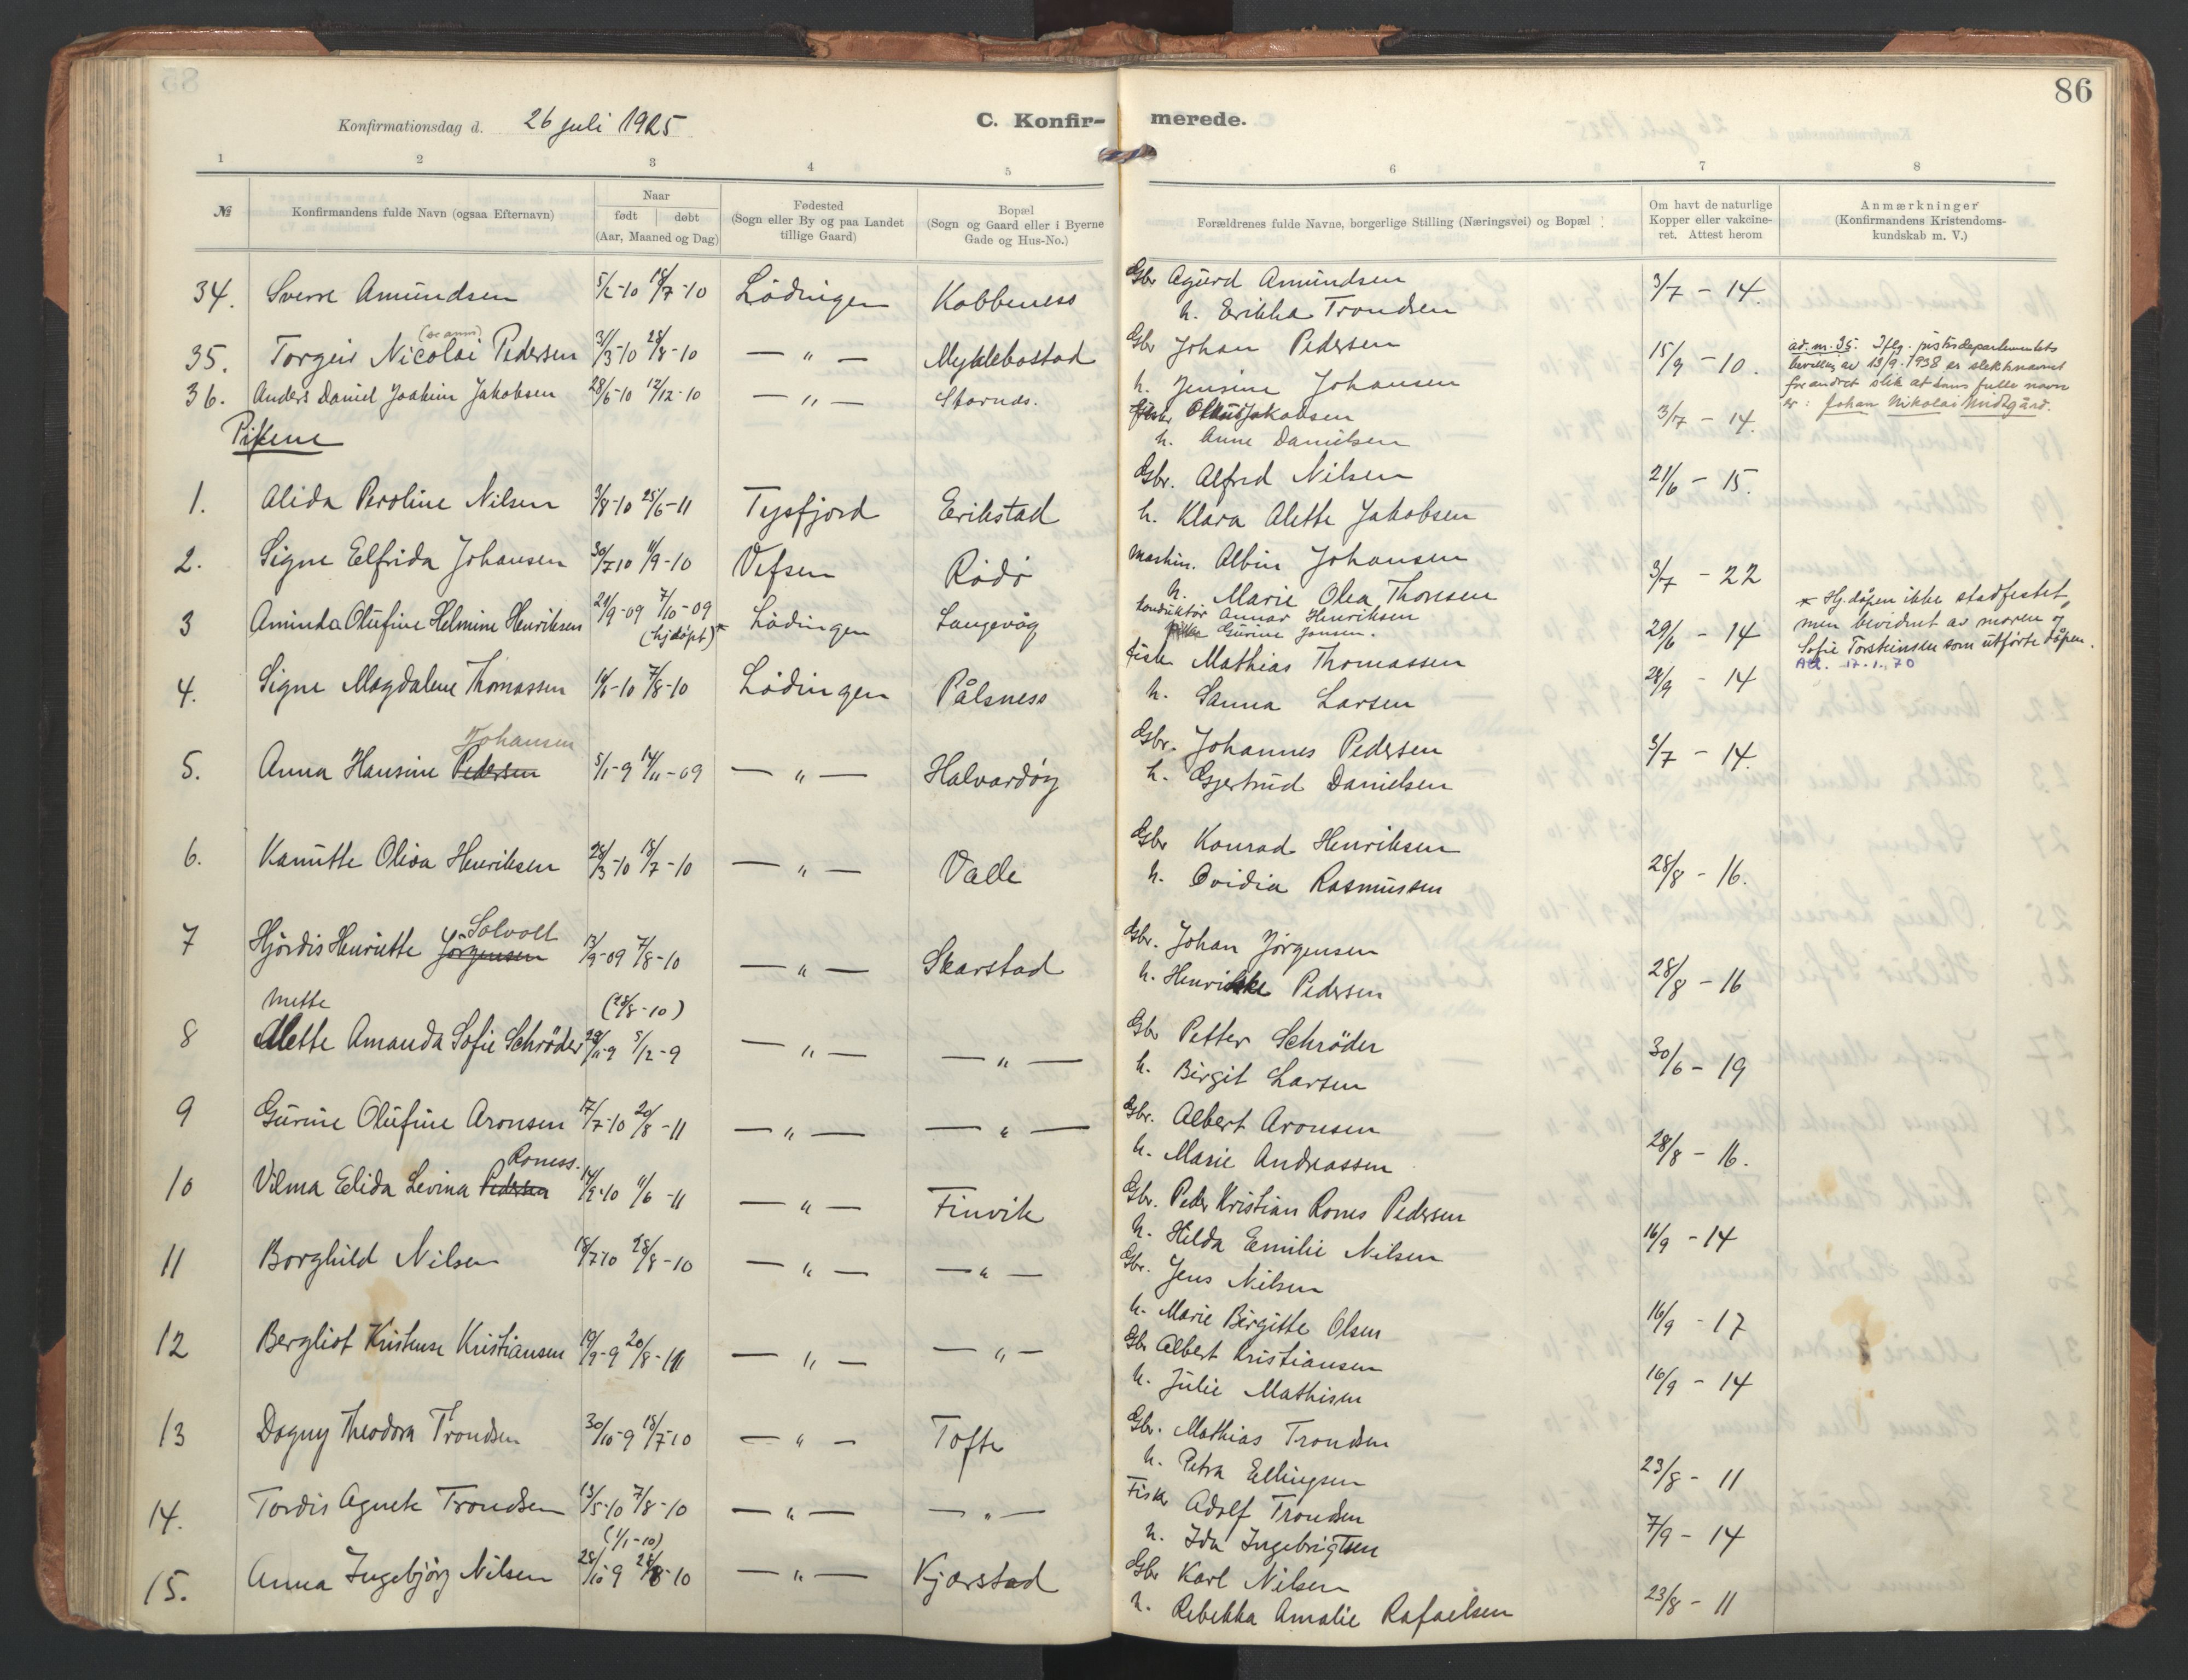 86
Konfirmationsdag d. 26 juli 1925
C. Konfir- merede.
1 2 3 4 5 6 7 8
№
Konfirmandens fulde Navn (ogsaa Efternavn)
Naar
født døbt
(Aar, Maaned og Dag)
Fødested
(Sogn eller By og paa Landet
tillige Gaard)
Bopæl
(Sogn og Gaard eller i Byerne
Gade og Hus-No.)
Forældrenes fulde Navne, borgerlige Stilling (Næringsvei) og Bopæl
Om havt de naturlige
Kopper eller vakcine-
ret. Attest herom
Anmærkninger
(Konfirmandens Kristendoms-
kundskab m. V.)
34. Sverre Amundsen 5/2-10 18/7-10 Lödingen Kobbeness Gbr Agurd Amundsen 3/7 - 14.
h. Erikka Trondsen
35. Torgeir Nicolai Pedersen 31/3-10 28/8-10 — " — Myklebostad Gbr Johan Pedersen 15/9 - 10.
h. Jensine Johansen
ad. nr. 35. Iflg. justisdepartementets
bevilling av 13/9-1938 er slektsnavnet
forandret slik at hans fulle navn
er: Johan Nikolai Midtgård.
36. Anders Daniel Joakim Jakobsen 28/6-10 12/12-10 — " — Stornes. Jakobsen 3/7 - 14.
h. Anne Danielsen
Pikene
1. Alida Peroline Nilsen 3/8-10 25/6-11 Tysfjord Erikstad Gbr. Alfred Nilsen 21/6 - 15.
h. Klara Alette Jakobsen
2. Signe Elfrida Johansen 30/7 10 11/9-10 Vefsen Rödö Maskin. Albin Johansen 3/7 - 22
h. Marie Olea Thoresen
3 Aminda Olufine Helmine Henriksen 21/9-09 7/10-09 Lödingen Langevåg Konduktör Annar Henriksen 29/6 - 14
(hjdöpt)* Pike Gurine Jansen.
* Hj.dåpen ikke stadfestet,
men bevidnet av moren og
Sofie Torsteinsen som utförte dåpen.
17.1.70
4. Signe Magdalene Thomassen 11/6-10 7/8-10 Lödingen Pålsness fisk. Mathias Thomassen 28/9 - 14
h. Sanna Larsen
Johansen
5. Anna Hansine Pedersen 5/1-9 14/11-09 — " — Halvardöy Gbr. Johannes Pedersen 3/7 - 14.
h. Gjertrud Danielsen
6. Kanutte Oliva Henriksen 28/3-10 18/7-10 — " — Valle Gbr Konrad Henriksen 28/8 - 16.
h. Ovidia Rasmussen
Solvoll
7 Hjördis Henriette Jörgensen 13/9-09 7/8-10 — " — Skarstad Gbr. Johan Jörgensen 28/8 - 16
h. Henrikke Pedersen
Mette (28/8-10)
8 Alette Amanda Sofie Schröder 29/11-9 5/12-9 — " — — " — Gbr Petter Schröder 30/6 - 19
h. Birgit Larsen
9 Gurine Olufine Aronsen 17/7-10 20/8-11 — " — — " — Gbr. Albert Aronsen 28/8 - 16.
h. Marie Andreassen
Roness.
10 Vilma Elida Levina Pedersen 14/9-10 11/6-11 — " — Finvik Gbr. Peder Kristian Rones Pedersen 16/9 - 14
h. Hilda Emilie Nilsen
11 Borghild Nilsen 18/7 10 28/8-10 — " — — " — Gbr. Jens Nilsen 16/9 - 17
h. Marie Birgitte Olsen
12 Bergliot Kristense Kristiansen 19/9-9 20/8-11 — " — — " — Gbr Albert Kristiansen 16/9 - 14
h. Julie Mathisen
13 Dagny Theodora Trondsen 30/10-9 18/7-10 — " — Tofte Gbr. Mathias Trondsen 23/8 - 11
h. Petra Ellingsen
14. Tordis Agnete Trondsen 13/5-10 7/8-10 — " — — " — Fisk. Adolf Trondsen 7/9 - 14
h. Ida Ingebrigtsen
(1/1-10)
15. Anna Ingebjörg Nilsen 28/10 9 28/8-10 — " — Kjærstad Gbr Karl Nilsen 23/8 - 11
h. Rebekka Amalie Rafaelsen